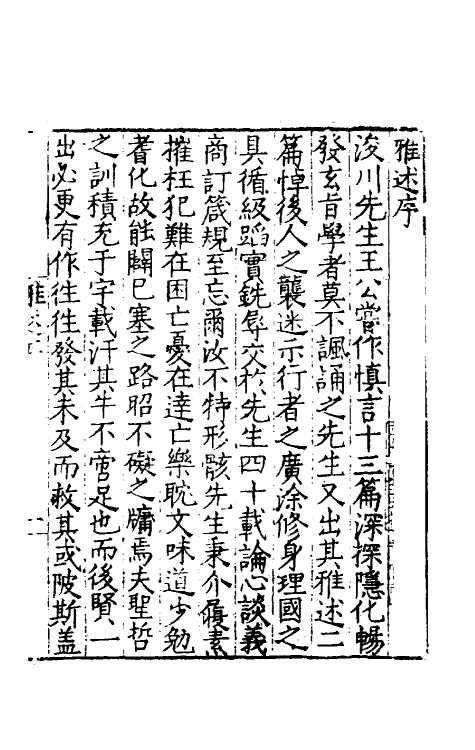 雅述序
浚川先生王公嘗作慎言十三篇深探隱化暢
發玄旨學者莫不諷誦之先生又出其雅述二
篇悼後人之襲迷示行者之廣涂修身理國之
具循級蹈實銑辱交於先生四十載論心談義
商訂箴規至忘爾汝不特形骸先生秉介履素
摧枉犯難在困亡憂在達亡樂耽文味道少勉
耆化故能闢已塞之路昭不礙之牖焉夫聖哲
之訓積充于字載汗其牛不啻足也而後賢一
出必更有作往往發其未及而救其或陂斯蓋